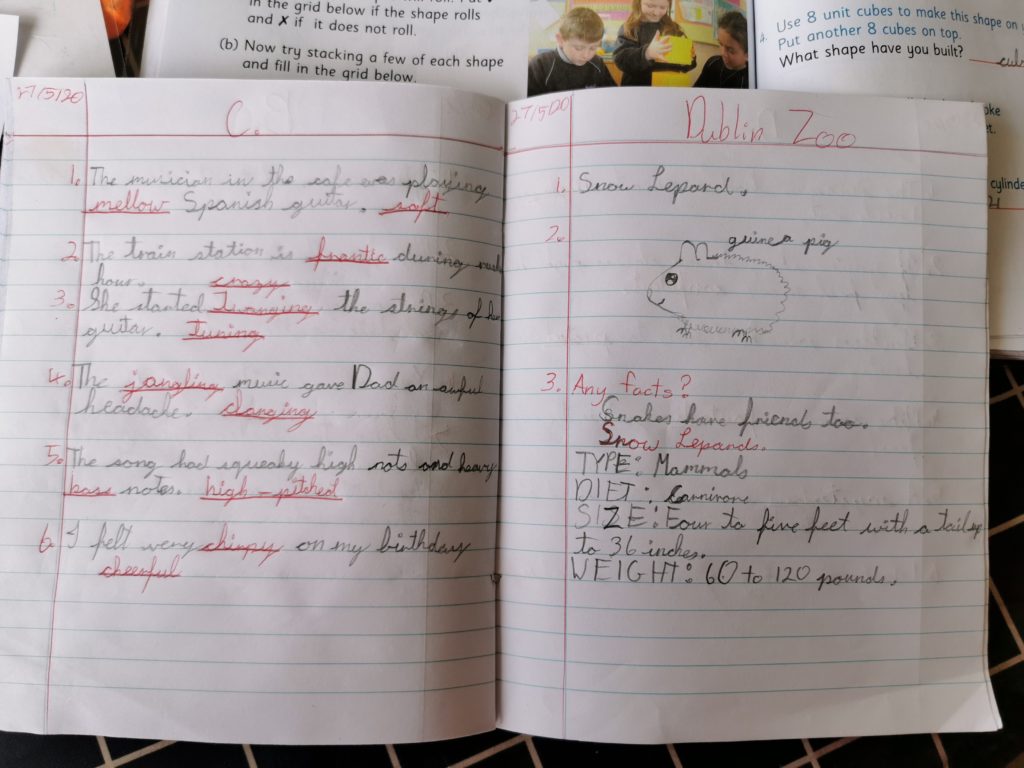 in the grid below if the shape rolls
and ✗ if it does not roll.
(b) Now try stacking a few of each shape
and fill in the grid below.
Use 8 unit cubes to make this shape on
Put another 8 cubes on top.
What shape have you built?
cylinde
27/5/20
C.
1. The musician in the cafe was playing
mellow Spanish guitar. soft
2. The train station is frantic during rush
hour. crazy
3. She started Twanging the strings of her
guitar. Tuning
4. The jangling music gave Dad an awful
headache. clanging
5. The song had squeaky high nots and heavy
base notes. high-pitched
6. I felt very chirpy on my birthday
cheerful
27/5/20
Dublin Zoo
1. Snow Lepard.
2. guinea pig
3. Any facts?
Snakes have friends too.
Snow Lepards.
TYPE: Mammals
DIET: Carnivore
SIZE: Four to five feet with a tail up
to 36 inches.
WEIGHT: 60 to 120 pounds.